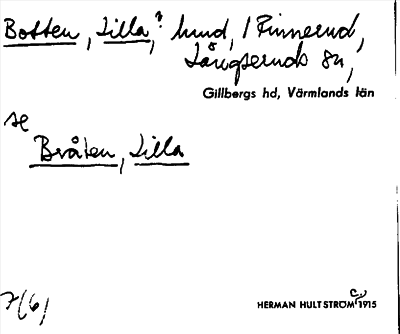 Botten, Lilla,? hmd, / Finnerud,
Långseruds sn,
Gillbergs hd, Värmlands län
se
Bråten, Lilla
7(6)
HERMAN HULTSTRÖM c. 1915